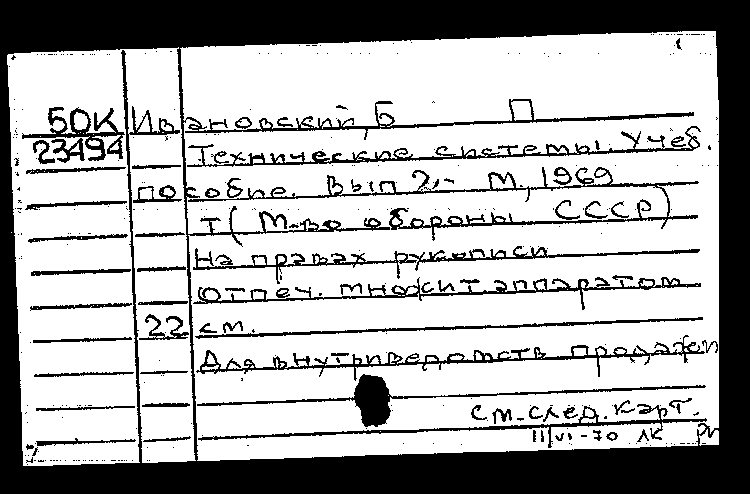 50К Ивановский, Б П
23494 Технические системы. Учеб.
пособие. Вып 2,- М., 1969
т ( М-во обороны СССР)
На правах рукописи
Отпеч. множит. аппаратом
22 см.
Для внутриведомств продажи
см. след. карт.
11/VI-70 ЛК